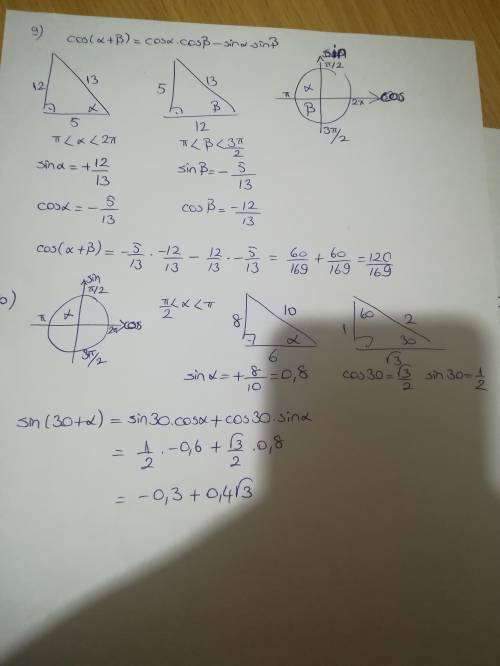 9) cos(α+β) = cosα.cosβ - sinα.sinβ
12 13 α 5
5 13 β 12
sin π/2 α π β 2π cos 3π/2
π<α<2π
π<β<3π/2
sinα=+12/13
sinβ=-5/13
cosα=-5/13
cosβ=-12/13
cos(α+β)=-5/13 . -12/13 - 12/13 . -5/13 = 60/169 + 60/169 = 120/169
sin π/2 π α 2π cos 3π/2
π/2<α<π
8 10 α 6
1 60 2 30 √3
sinα=+8/10=0,8
cos30=√3/2 sin30=1/2
sin(30+α) = sin30.cosα+cos30.sinα
= 1/2 . -0,6 + √3/2 .0,8
= -0,3 + 0,4√3